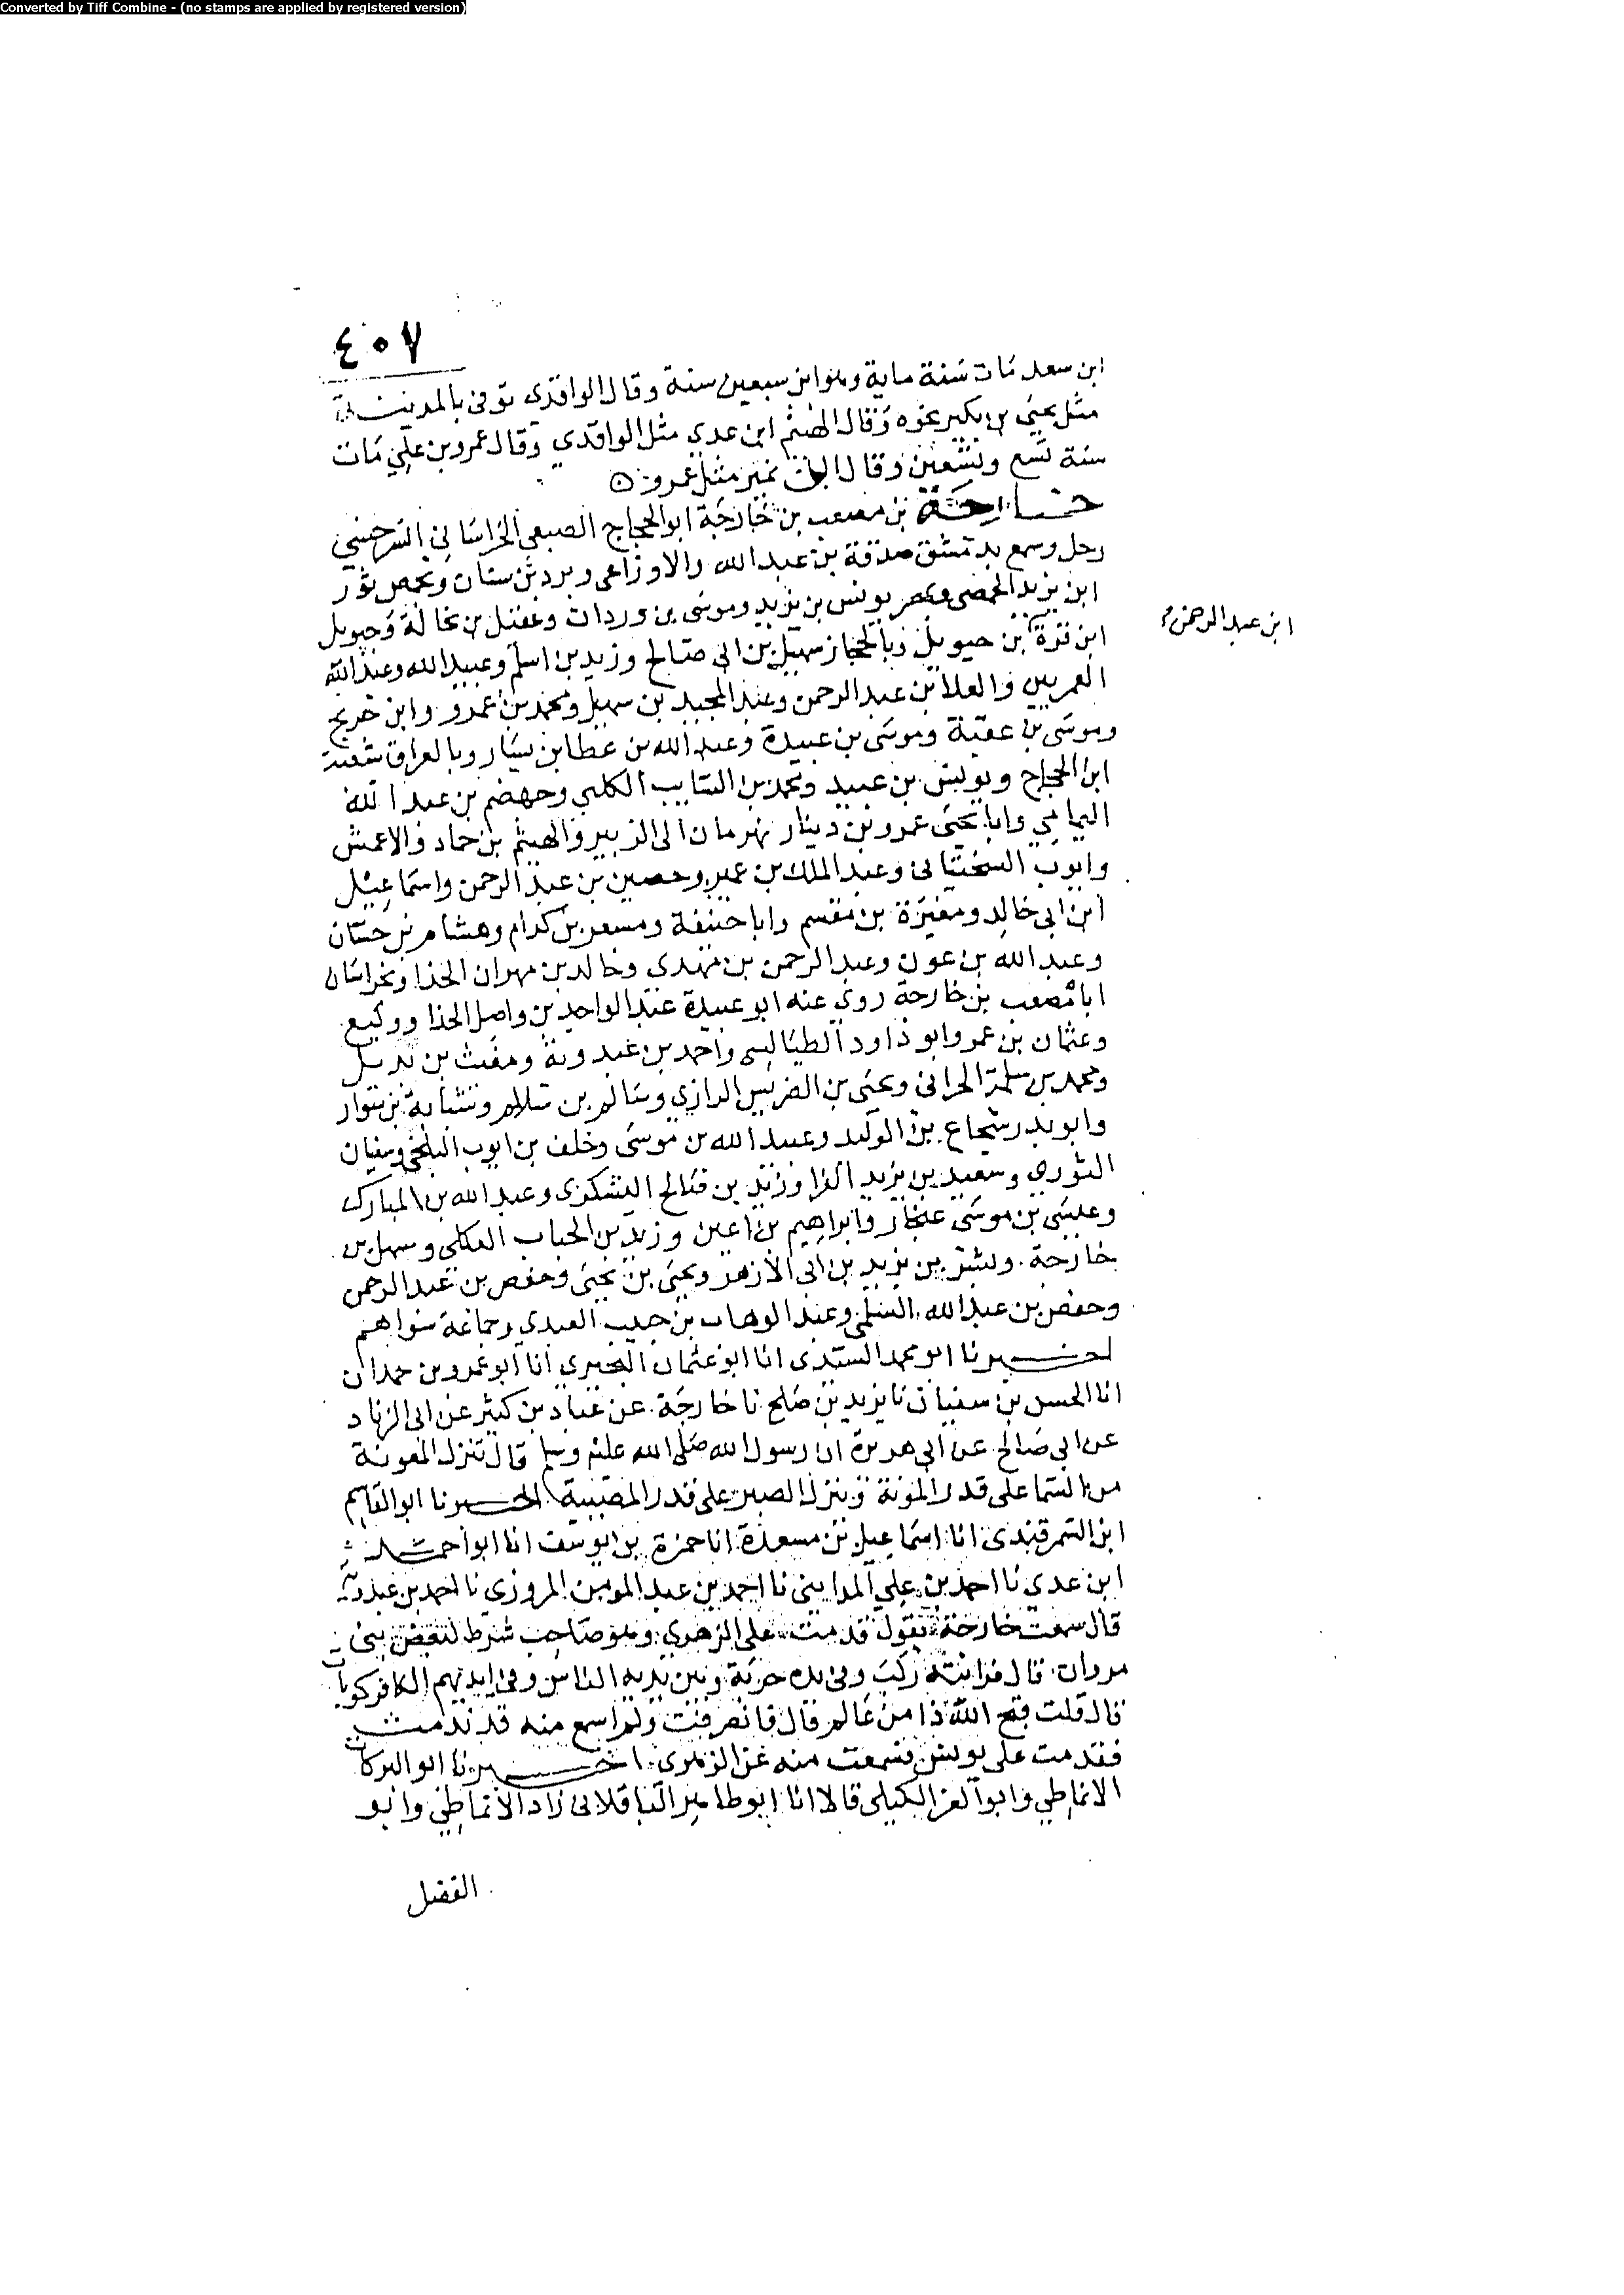 Converted by Tiff Combine - (no stamps are applied by registered version)
٤٠٧
ابن سعد مات سنة ماية وهو ابن سبعين سنة وقال الواقدي توفى بالمدينة
مثل يحيى بن بكير نحوه وقال الهيثم ابن عدي مثل الواقدي وقال عمرو بن علي مات
سنة تسع وتسعين وقال ابن نمير مثل عمرو
خارجة بن مصعب بن خارجة ابو الحجاج الضبعي الخراساني السرخسي
رحل وسمع بدمشق صدقة بن عبد الله والاوزاعي وبرد بن سنان وبحمص ثور
ابن يزيد الحمصى وبمصر يونس بن يزيد وموسى بن وردان وعقيل بن خالد وحيويل
ابن عبد الرحمن
ابن قرة بن حيويل وبالحجاز سهيل بن ابى صالح وزيد بن اسلم وعبيد الله وعبد الله
العمريين والعلا بن عبد الرحمن وعبد المجيد بن سهيل ومحمد بن عمرو وابن جريج
وموسى بن عقبة وموسى بن عبيدة وعبد الله بن عطا بن يسار وبالعراق شعبة
ابن الحجاج ويونس بن عبيد ومحمد بن السايب الكلبي وجهضم بن عبد الله
اليمامي وابا يحيى عمرو بن دينار قهرمان ال الزبير والهيثم بن حماد والاعمش
وايوب السختيانى وعبد الملك بن عمير وحصين بن عبد الرحمن واسماعيل
ابن ابي خالد ومغيرة بن مقسم وابا حنيفة ومسعر بن كدام وهشام بن حسان
وعبد الله بن عون وعبد الرحمن بن مهدى وخالد بن مهران الحذا وبخراسان
اباه مصعب بن خارجة روى عنه ابو عبيدة عبد الواحد بن واصل الحذا ووكيع
وعثمان بن عمر وابو داود الطيالسى واحمد بن عبدوية ومغيث بن بديل
ومحمد بن سلمة الحرانى ويحيى بن الضريس الرازي وسالم بن سلام وشبابة بن سوار
وابو بدر شجاع بن الوليد وعبيد الله بن موسى وخلف بن ايوب البلخي وسفيان
الثوري وسعيد بن يزيد الفرا وزيد بن صالح اليشكرى وعبد الله بن المبارك
وعيسى بن موسى غنجار وابراهيم بن اعين وزيد بن الحباب العكلي وسهل بن
خارجة وبشر بن يزيد بن ابى الازهر ويحيى بن يحيى وحفص بن عبد الرحمن
وحفص بن عبد الله السلمى وعبد الوهاب بن حبيب العبدي وجماعة سواهم
اخبرنا ابو محمد السيدى انا ابو عثمان البحيري انا ابو عمرو بن حمدان
انا الحسن بن سفيان نا يزيد بن صلح نا خارجة عن عباد بن كثير عن ابى الزناد
عن ابي صالح عن ابي هريرة ان رسول الله صلى الله عليه وسلم قال تنزل المعونة
من السما على قدر المونة وينزل الصبر على قدر المصيبة اخبرنا ابو القاسم
ابن السمرقندى انا اسماعيل بن مسعدة انا حمزة بن يوسف انا ابو احمد
ابن عدي نا احمد بن علي المدايني نا احمد بن عبد المومن المروزى نا احمد بن عبدويه
قال سمعت خارجة يقول قدمت على الزهري وهو صاحب شرط لبعض بني
مروان قال فرايته ركب وفى يده حربة وبين يديه الناس وفى ايديهم الكافركوبات
قال قلت قبح الله ذا من عالم قال فانصرفت ولم اسمع منه قد ندمت
فقدمت على يونس فسمعت منه عن الزهرى اخبرنا ابو البركات
الانماطي وابو العز الكيلى قالا انا ابو طاهر الباقلانى زاد الانماطي وابو
الفضل